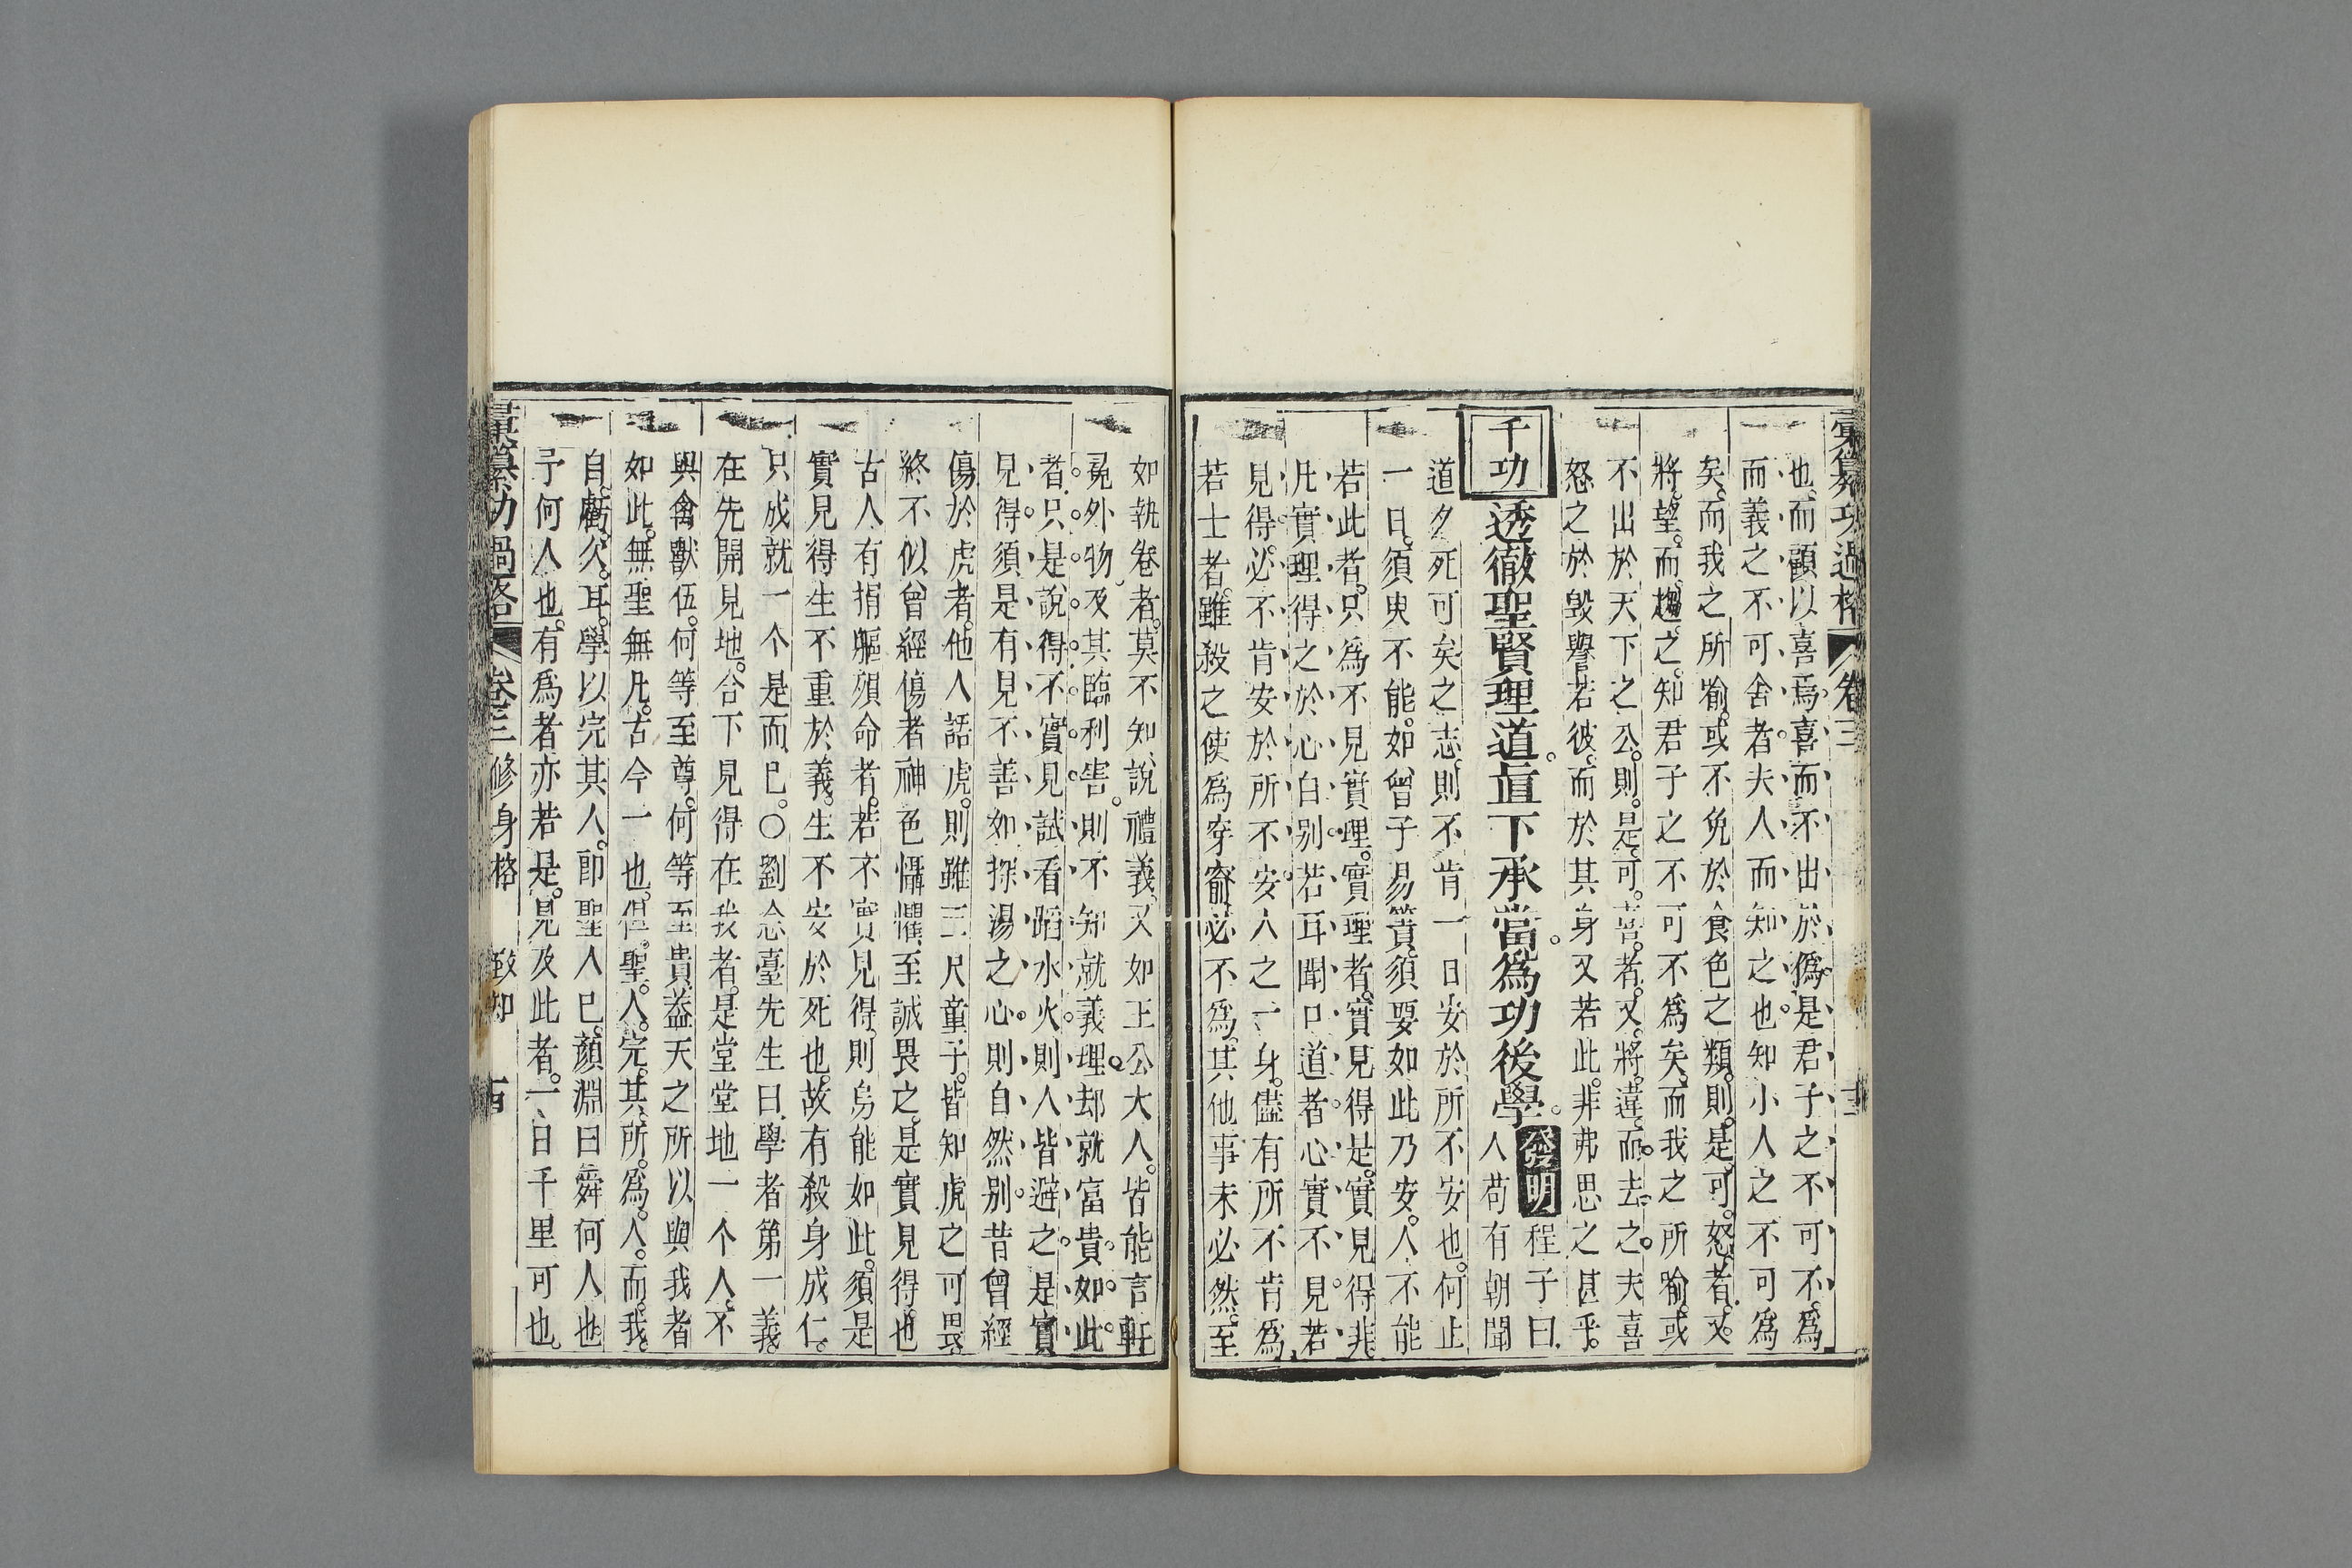 彙纂功過格 卷三
也而顧以喜爲喜而不出於僞是君子之不可不爲
而義之不可舍者夫人而知之也知小人之不可爲
矣而我之所喻或不免於食色之類則是可怒者又
將望而趨之知君子之不可不爲矣而我之所喻或
不出於天下之公則是可喜者又將違而去之夫喜
怒之於毀譽若彼而於其身又若此非弗思之甚乎
千功 透徹聖賢理道直下承當爲功後學 發明 程子曰
人苟有朝聞
道夕死可矣之志則不肯一日安於所不安也何止
一日須臾不能如曾子易簀須要如此乃安人不能
若此者只爲不見實理實理者實見得是實見得非
凡實理得之於心自别若耳聞口道者心實不見若
見得必不肯安於所不安人之一身儘有所不肯爲
若士者雖殺之使爲穿窬必不爲其他事未必然至
如執卷者莫不知說禮義又如王公大人皆能言軒
冕外物及其臨利害則不知就義理却就富貴如此
者只是說得不實見試看蹈水火則人皆避之是實
見得須是有見不善如探湯之心則自然别昔曾經
傷於虎者他人語虎則雖三尺童子皆知虎之可畏
終不似曾經傷者神色懾懼至誠畏之是實見得也
古人有捐軀殞命者若不實見得則烏能如此須是
實見得生不重於義生不安於死也故有殺身成仁
只成就一个是而已○劉念臺先生曰學者第一義
在先開見地合下見得在我者是堂堂地一个人不
與禽獸伍何等至尊何等至貴蓋天之所以與我者
如此無聖無凡古今一也但聖人完其所爲人而我
自虧欠耳學以完其人即聖人已顏淵曰舜何人也
予何人也有爲者亦若是見及此者一日千里可也
彙纂功過格 卷三 修身格 致知